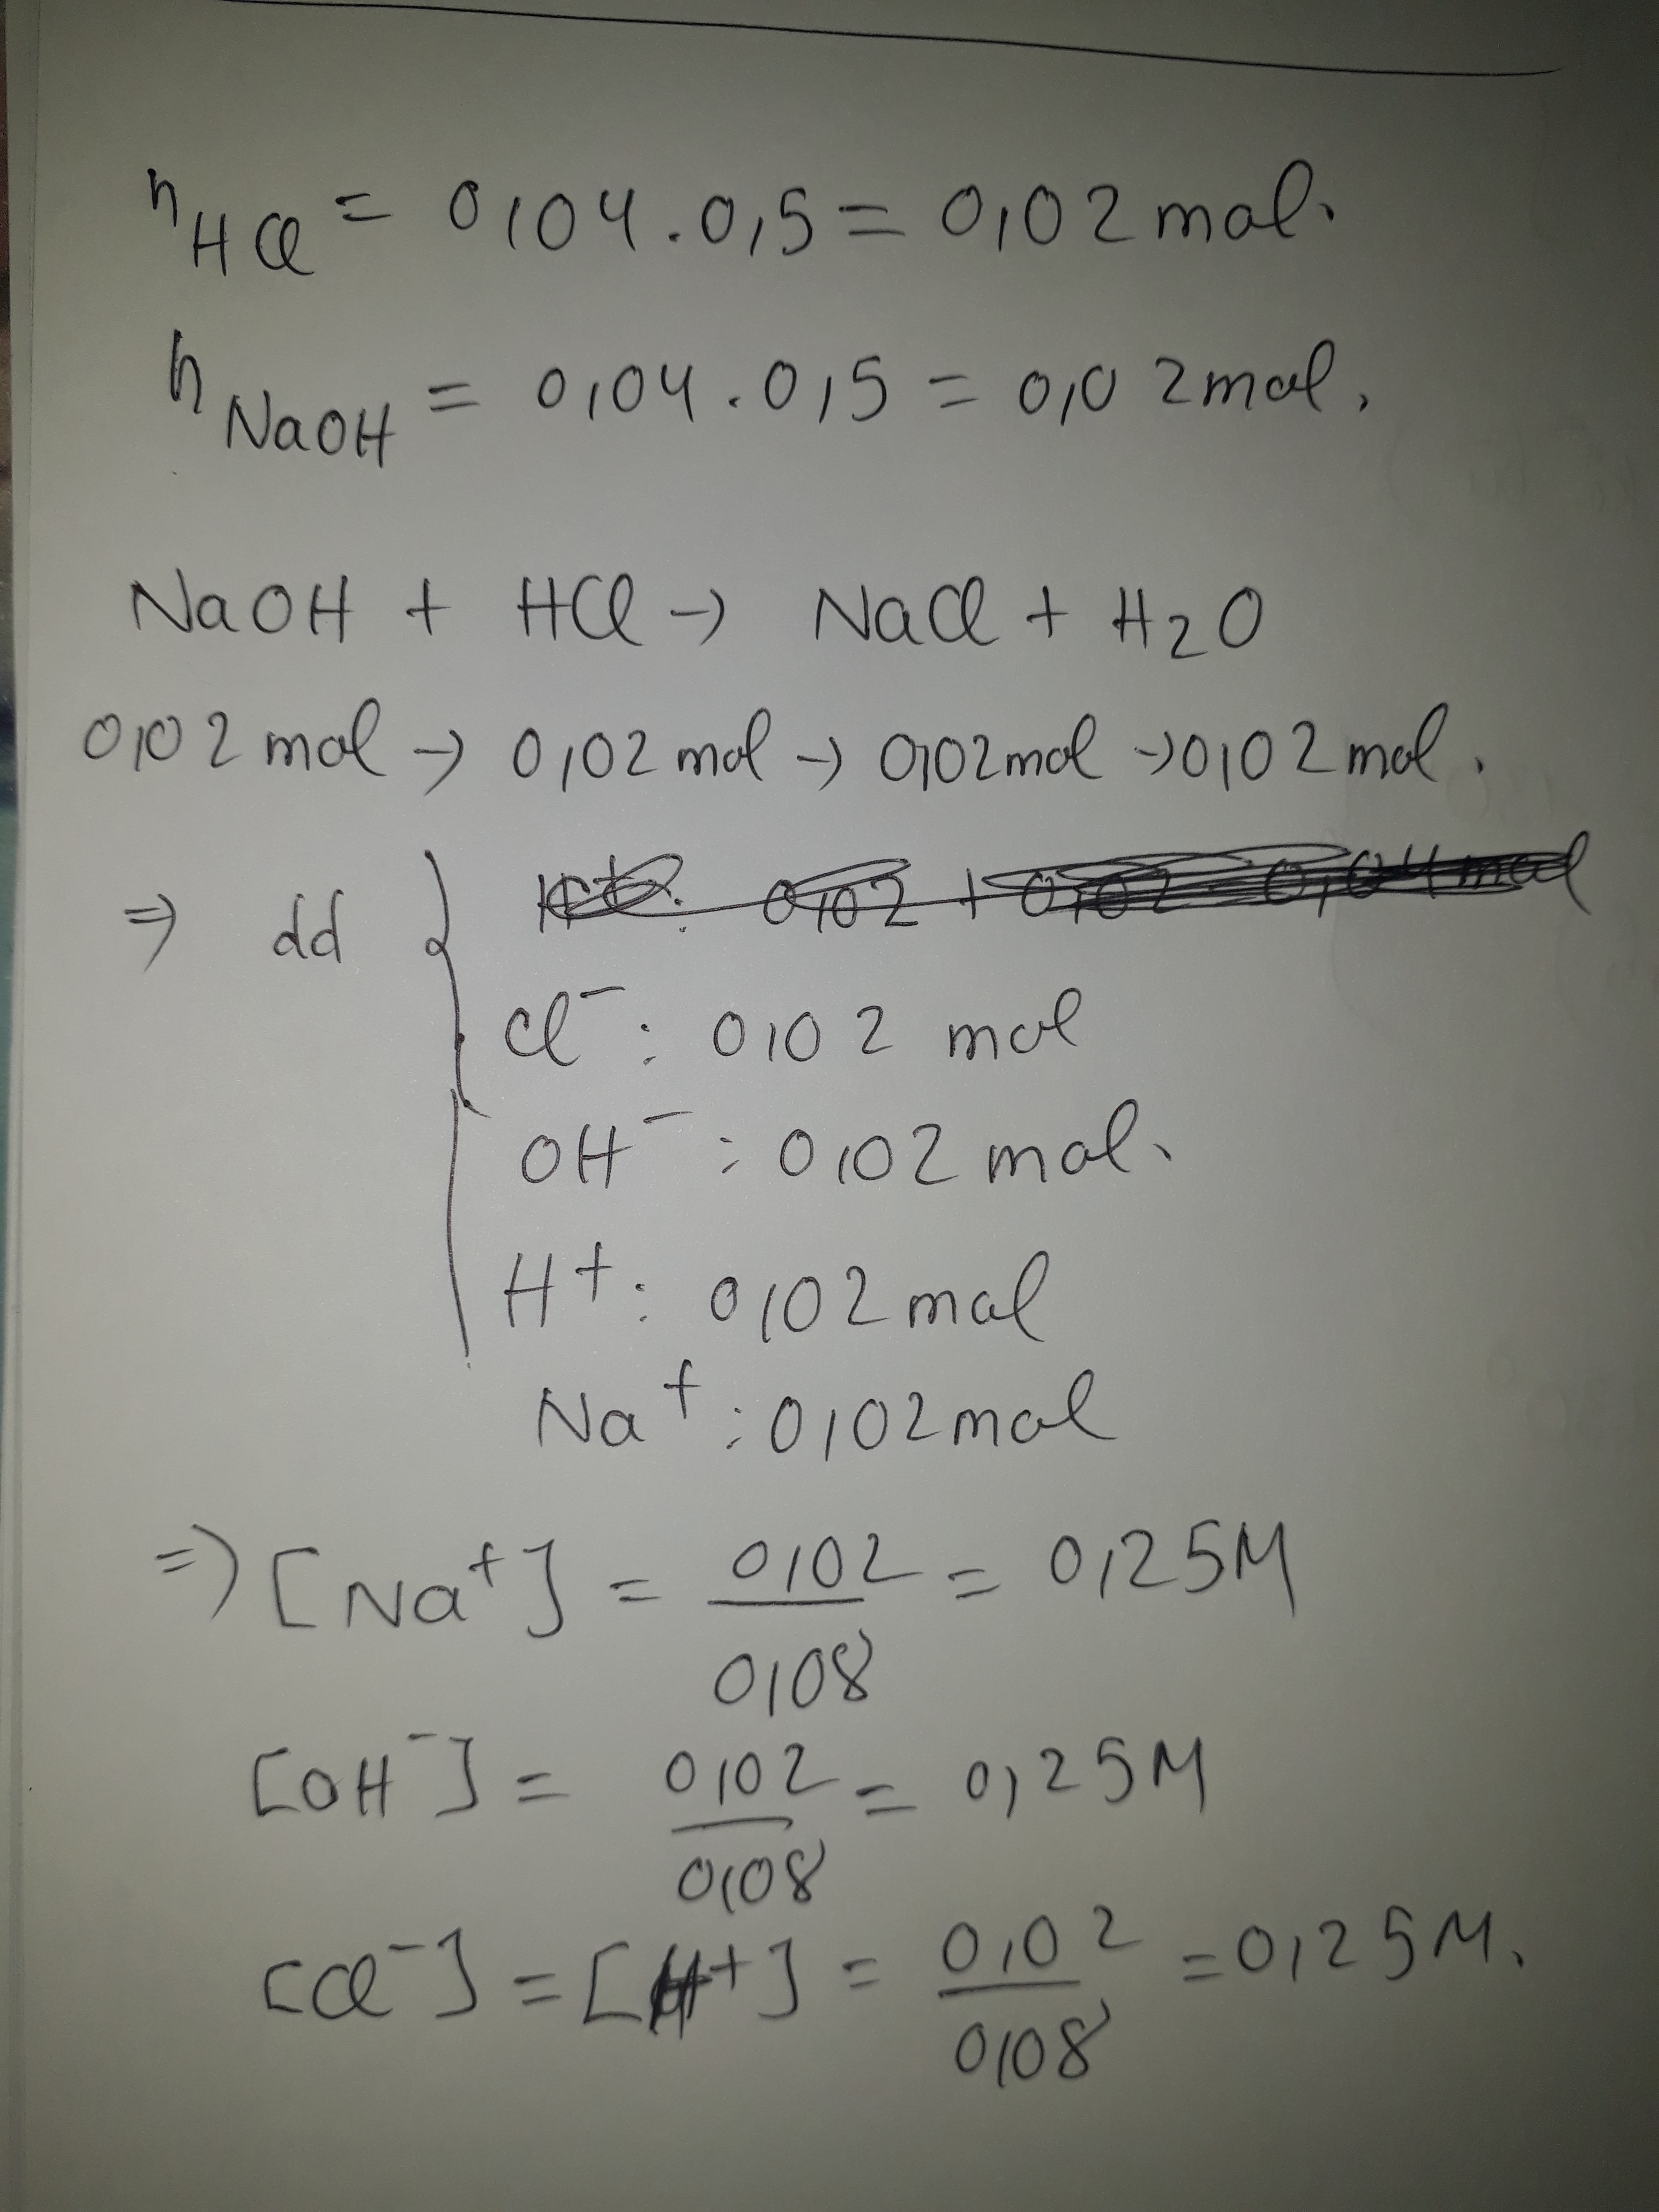 nHCl = 0,04 . 0,5 = 0,02 mol.
nNaOH = 0,04 . 0,5 = 0,02 mol.
NaOH + HCl → NaCl + H2O
0,02 mol → 0,02 mol → 0,02 mol → 0,02 mol.
⇒ dd {
Cl⁻ : 0,02 mol
OH⁻ : 0,02 mol.
H⁺ : 0,02 mol
Na⁺ : 0,02 mol
⇒ [Na⁺] = 0,02/0,08 = 0,25M
[OH⁻] = 0,02/0,08 = 0,25M
[Cl⁻] = [H⁺] = 0,02/0,08 = 0,25M.